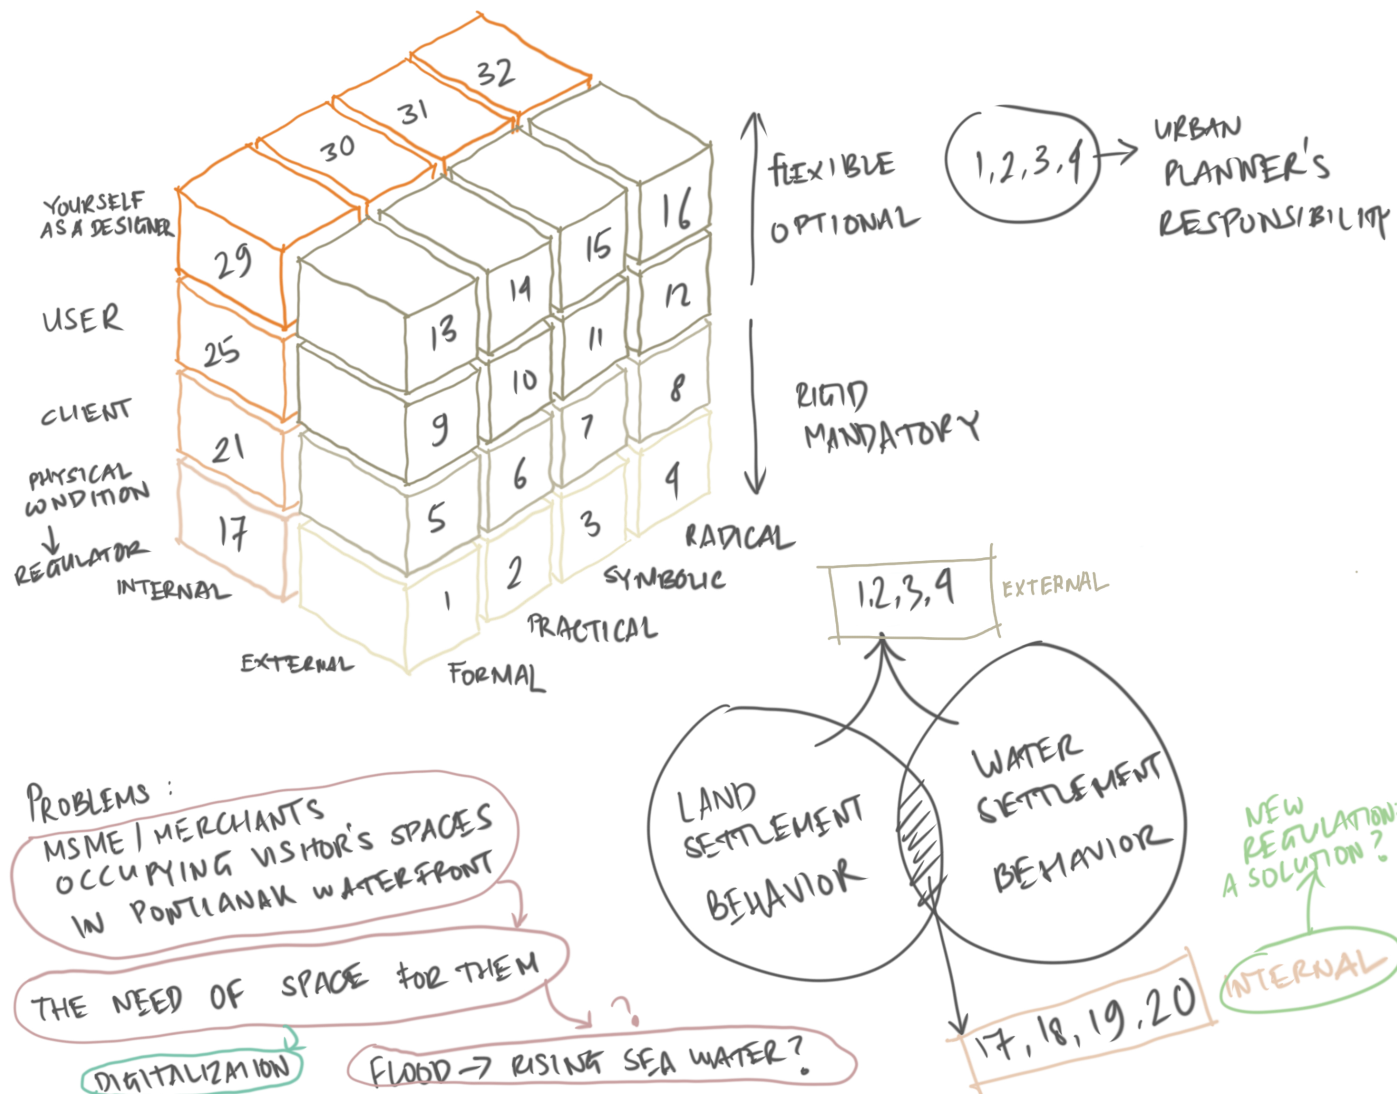 32
31
30
29
16
15
14
13
12
11
10
9
25
8
7
6
5
21
4
3
2
1
17
YOURSELF
AS A DESIGNER
USER
CLIENT
PHYSICAL
CONDITION
REGULATOR
INTERNAL
EXTERNAL
FORMAL
PRACTICAL
SYMBOLIC
RADICAL
FLEXIBLE
OPTIONAL
RIGID
MANDATORY
1, 2, 3, 4
URBAN
PLANNER'S
RESPONSIBILITY
1, 2, 3, 4
EXTERNAL
LAND
SETTLEMENT
BEHAVIOR
WATER
SETTLEMENT
BEHAVIOR
17, 18, 19, 20
INTERNAL
NEW
REGULATION:
A SOLUTION?
PROBLEMS:
MSME / MERCHANTS
OCCUPYING VISITOR'S SPACES
IN PONTIANAK WATERFRONT
THE NEED OF SPACE FOR THEM
DIGITALIZATION
?
FLOOD → RISING SEA WATER?